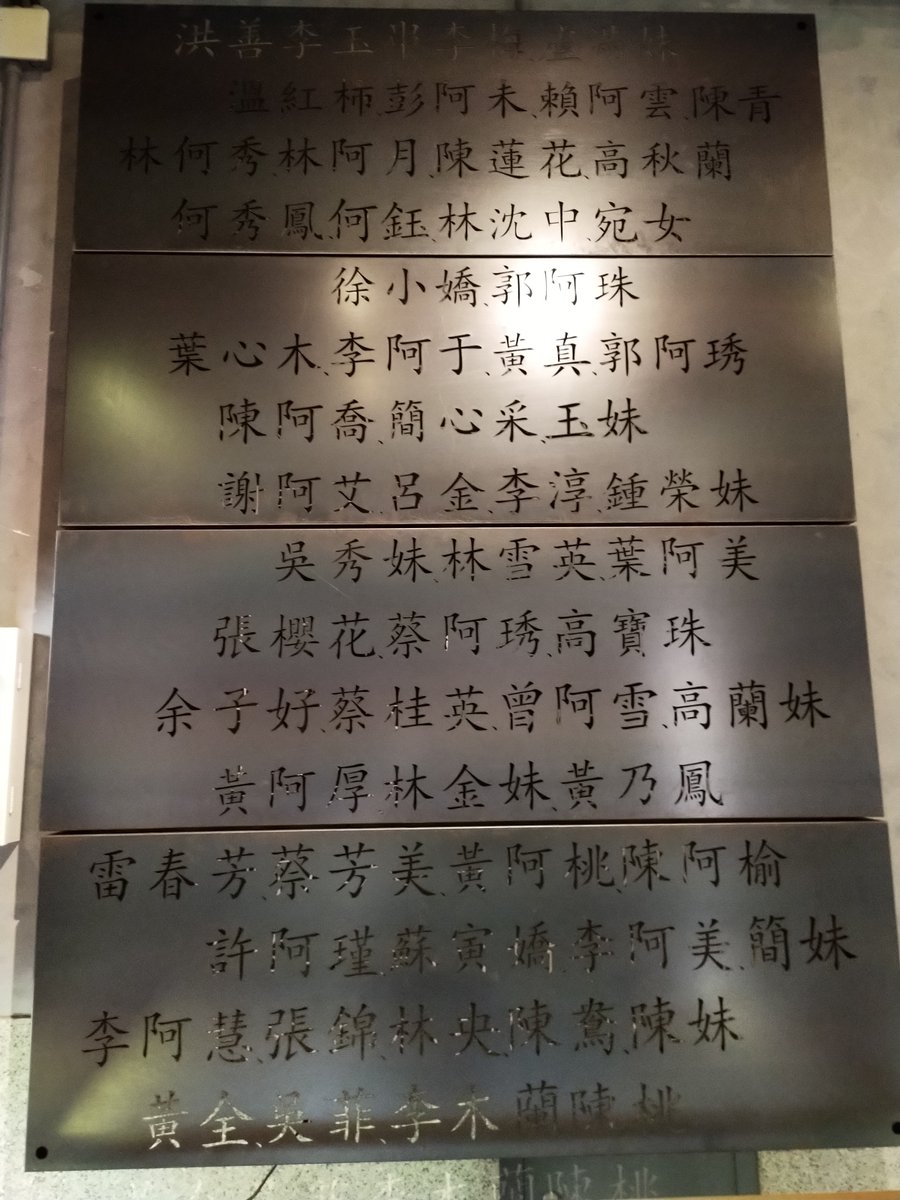 洪善李玉
溫紅柿、彭阿未、賴阿雲、陳青
林何秀、林阿月、陳蓮花、高秋蘭
何秀鳳、何鈺、林沈中、宛女
徐小嬌、郭阿珠
葉心木、李阿于、黃真、郭阿琇
陳阿喬、簡心采、玉妹
謝阿艾、呂金、李淳、鍾榮妹
吳秀妹、林雪英、葉阿美
張櫻花、蔡阿琇、高寶珠
余子好、蔡桂英、曾阿雪、高蘭妹
黃阿厚、林金妹、黃乃鳳
雷春芳、蔡芳美、黃阿桃、陳阿榆
許阿瑾、蘇寅嬌、李阿美、簡妹
李阿慧、張錦、林央、陳鴦、陳妹
黃全、吳菲、李木蘭、陳桃